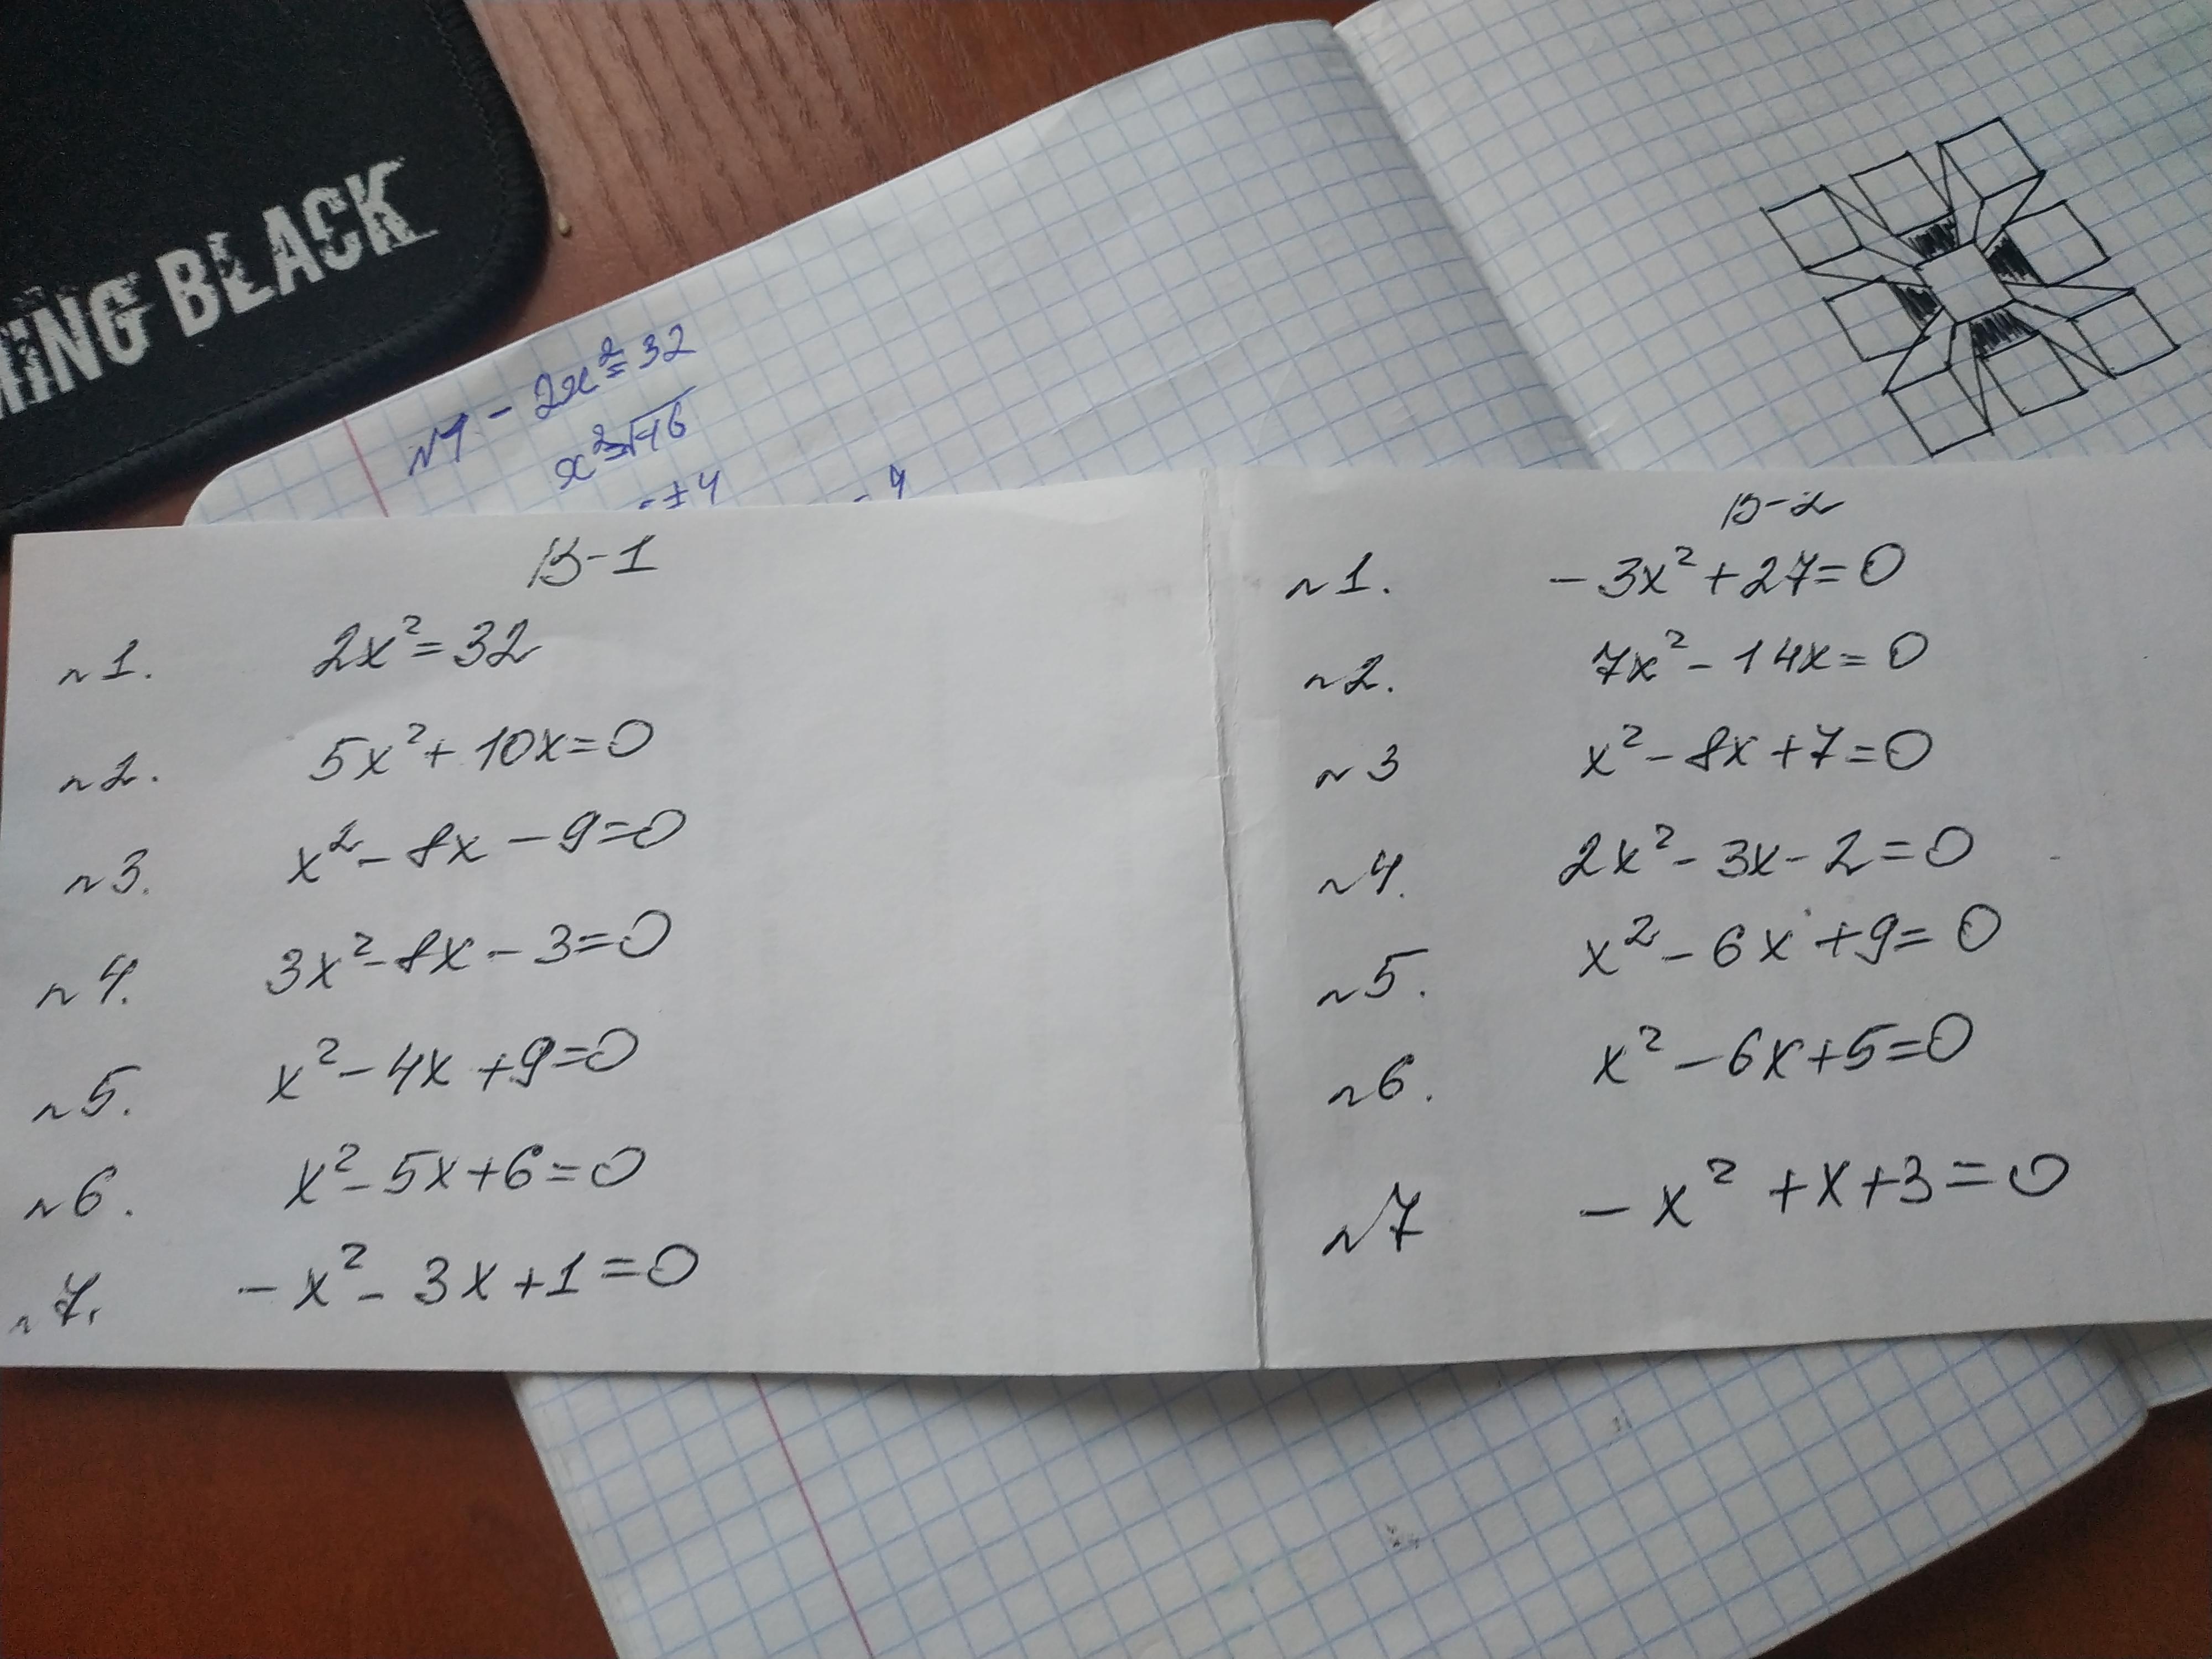 ING BLACK
№1 - 2x²=32
x²=√16
=±4 -4
В-1
№1. 2x²=32
№2. 5x²+10x=0
№3. x²-8x-9=0
№4. 3x²-8x-3=0
№5. x²-4x+9=0
№6. x²-5x+6=0
№7. -x²-3x+1=0
В-2
№1. -3x²+27=0
№2. 7x²-14x=0
№3 x²-8x+7=0
№4. 2x²-3x-2=0
№5. x²-6x+9=0
№6. x²-6x+5=0
№7 -x²+x+3=0